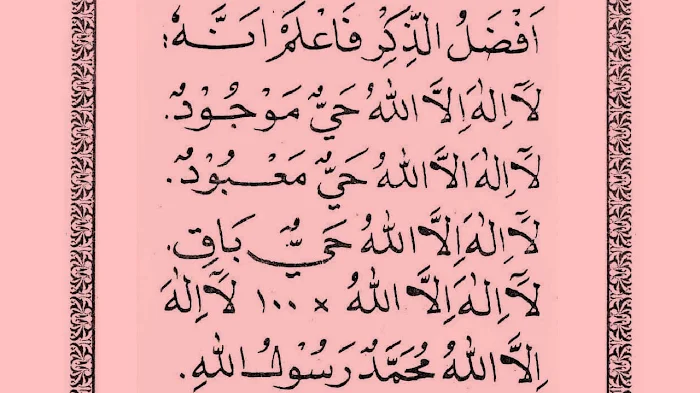 اَفْضَلُ الذِّكِرِ فَاعْلَمْ اَنَّهُ:
لَآ اِلٰهَ اِلَّا اللهُ حَيٌّ مَوْجُوْدٌ.
لَآ اِلٰهَ اِلَّا اللهُ حَيٌّ مَعْبُوْدٌ.
لَآ اِلٰهَ اِلَّا اللهُ حَيٌّ بَاقٍ.
لَآ اِلٰهَ اِلَّا اللهُ × ١٠٠ لَآ اِلٰهَ
اِلَّا اللهُ مُحَمَّدٌ رَسُوْلُ اللهِ.